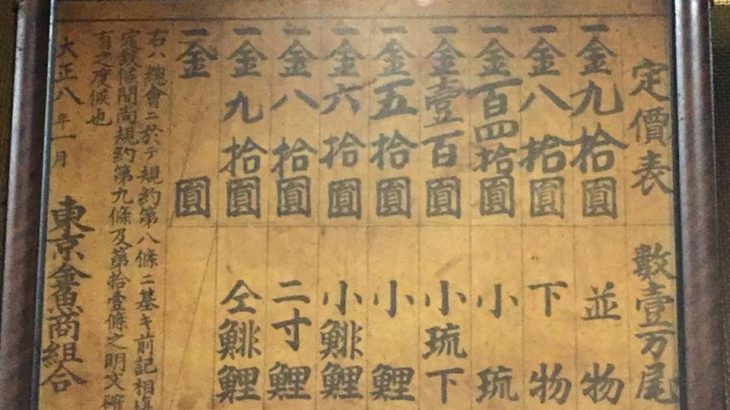 定價表 數壹万尾
一金九拾圓 並物
一金八拾圓 下物
一金百四拾圓 小琉
一金壹百圓 小琉下
一金五拾圓 小鯉
一金六拾圓 小鯡鯉
一金八拾圓 二寸鯉
一金九拾圓 仝鯡鯉
一金 圓
右ハ總會ニ於テ規約第八條ニ基キ前記相
定致候間尚規約第九條及第拾壹條之明文確
有之度候也
大正八年一月 東京金魚商組合